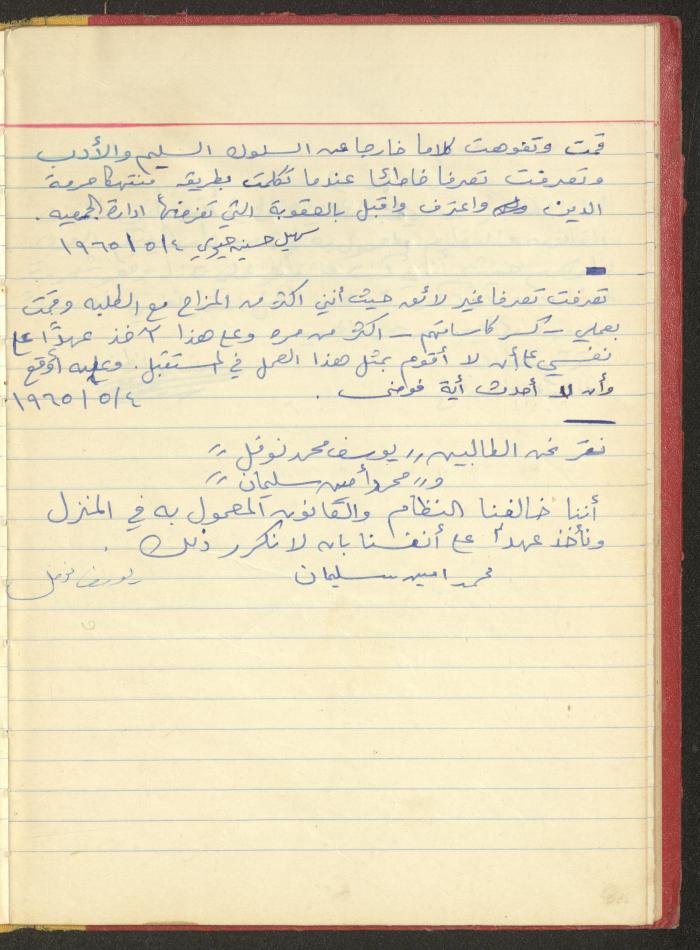 قمت وتفوهت كلاما خارجا عن السلوك السليم والأدب
وتصرفت تصرفا خاطئا عندما تكلمت بطريقه منتهكا حرمة
الدين واعترف واقبل بالعقوبة التي تفرضها ادارة الجمعيه .
سهيل حسين ١٩٦٥/٥/٤
تصرفت تصرفا غير لائق حيث أنني اكثر من المزاح مع الطلبه وقمت
بعملي - كسر كاساتهم - اكثر من مره وعلى هذا آخذ عهدًا على
نفسي على أن لا أقوم بمثل هذا العمل في المستقبل . وعليه أوقع
وأن لا أحدث أية فوضى . ١٩٦٥/٥/٤
نقر نحن الطالبين ,, يوسف محمد نوفل ,,
و ,, محمد أمين سليمان ,,
أننا خالفنا النظام والقانون المعمول به في المنزل
ونأخذ عهدا على أنفسنا بان لا نكرر ذلك .
محمد امين سليمان يوسف نوفل